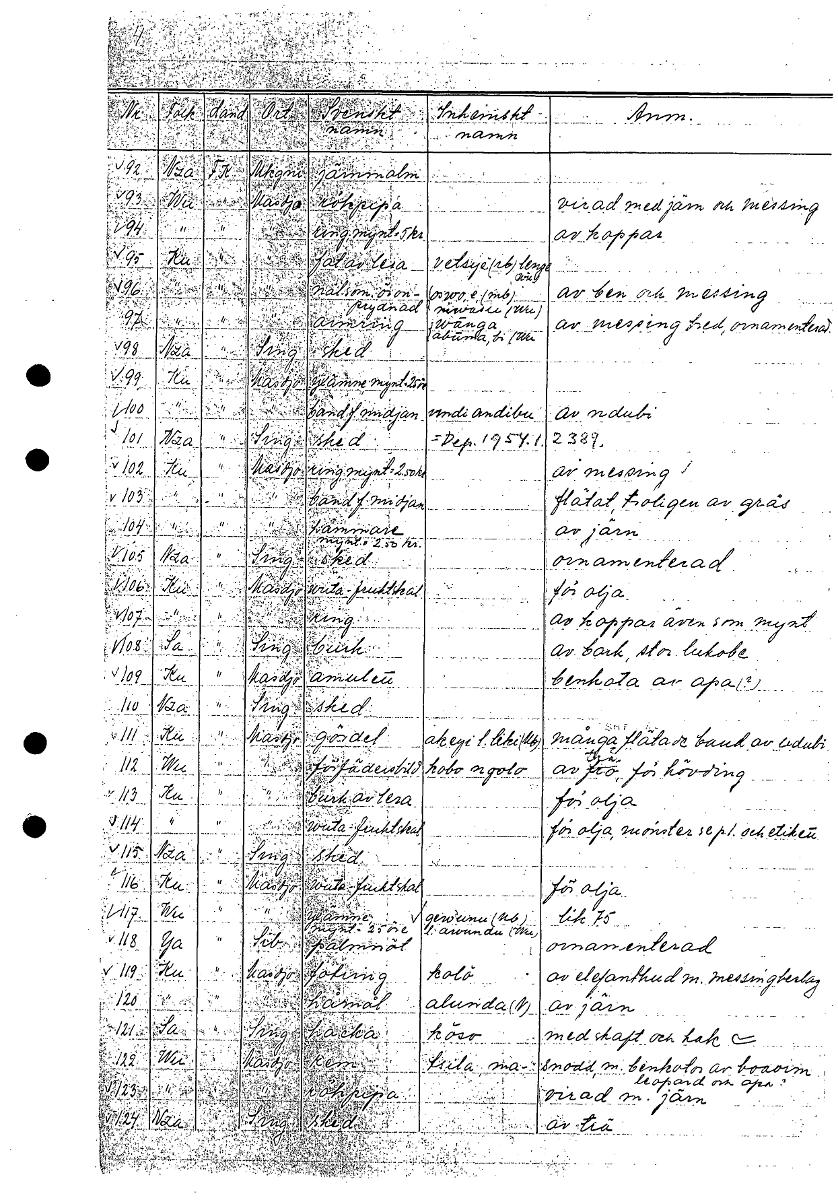 4
Nr. Folk Land Ort Svenskt namn Inhemskt namn Anm.
√92 Nza F.K. Mkgnu järnmalm
√93 Wu " Nasdjo rökpipa virad med järn och messing
√94 " " " ring mynt = 5 kr av koppar
√95 Ku " " fat av lera vetsye (rb) lenge
√96 " " " nål som öron- prydnad (mb) av ben och messing
97 " " " armring wänga av messingtred, ornamenterad
abuma, bi (Wu
√98 Nza " Sing sked
√99 Ku " Nasdjo mynt = 25 öre
√100 " " " band f. midjan undi andibu av ndubi
√101 Nza " Sing sked = Dep. 1954.1. 2389.
√102 Ku " Nasdjo ring mynt = 2.50 kr av messing
√103 " " " band f. midjan flätat, troligen av gräs
104 " " " hammare av järn
mynt = 2.50 kr.
√105 Nza " Sing sked ornamenterad
√106 Ku " Nasdjo wuta-fruktskal för olja
√107 " " " ring av koppar även som mynt
√108 Sa " Sing burk av bark, stor lukobe
√109 Ku " Nasdjo amulett benkota av apa (?)
110 Nza " Sing sked
√111 Ku " Nasdjo gördel akeyi l. liki (Ub) många flätade band av ndubi
112 Wu " " förfädersbild kobo ngolo av trä, för hövding
√113 Ku " " burk av lera för olja
√114 " " " wuta-fruktskal för olja, mönster se pl. och etikett
√115 Nza " Sing sked
√116 Ku " Nasdjo wuta-fruktskal för olja
√117 Wu " " √ (Ub) lik 75
mynt = 25 öre l. awundu (Wu)
√118 Ya " Sib. ornamenterad
√119 Ku " Nasdjo fotring kolo av elefanthud m. messingbeslag
120 " " " hårnål alunda (N) av järn
√121 Sa " Sing hacka köso med skaft och hak
√122 Wu " Nasdjo rem tsila ma- snodd, m. benkotor av boaorm
leopard och apa?
√123 " " " rökpipa virad m. järn
√124 Nza " Sing sked av trä